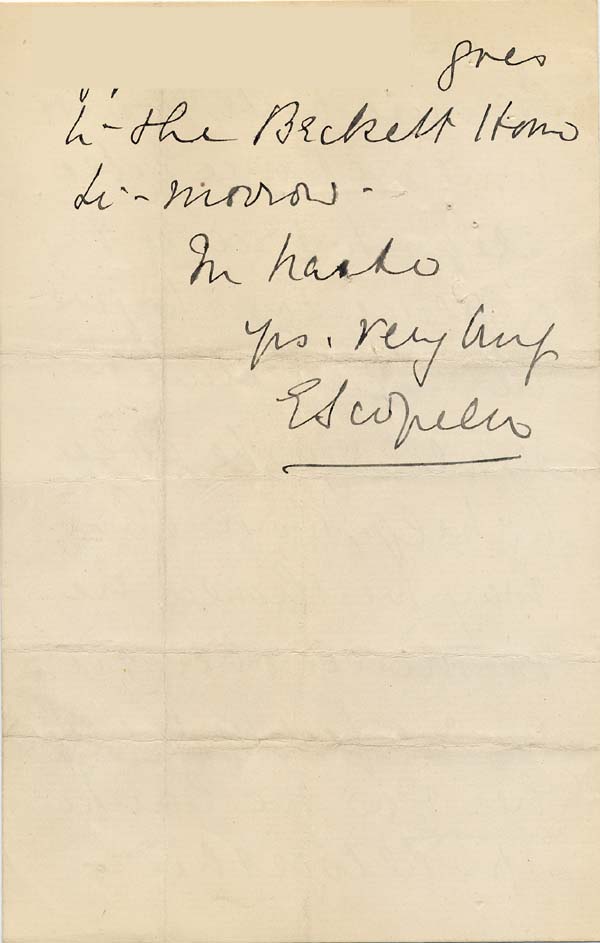 goes
to-the Beckett Home
to-morrow-
In haste
yrs. very truly